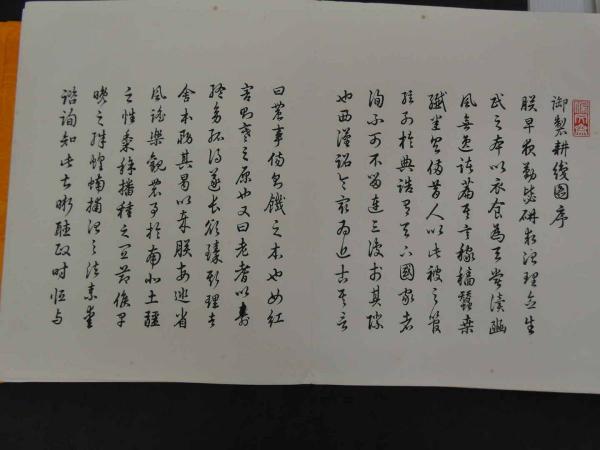 御製耕織圖序
朕早夜勤毖研求治理念生
民之本以衣食為天嘗讀豳
風無逸諸篇其言稼穡蠶桑
纖悉具備昔人以此被之管
弦列於典誥有天下國家者
洵不可不留連三復於其際
也西漢詔令最為近古其言
曰農事傷則饑之本也女紅
害則寒之原也又曰老耆以壽
終幼孤得遂長欲臻斯理者
舍本務其曷以哉朕每巡省
風謠樂觀農事於南北土疆
之性黍稌播種之宜節候早
晚之殊蝗蝻捕治之法素愛
諮詢知此甚晰聽政時恒與